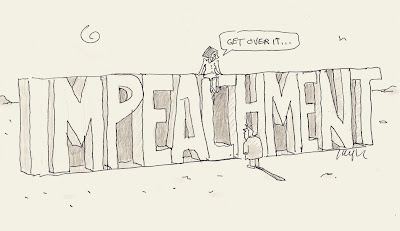 GET OVER IT...
IMPEACHMENT